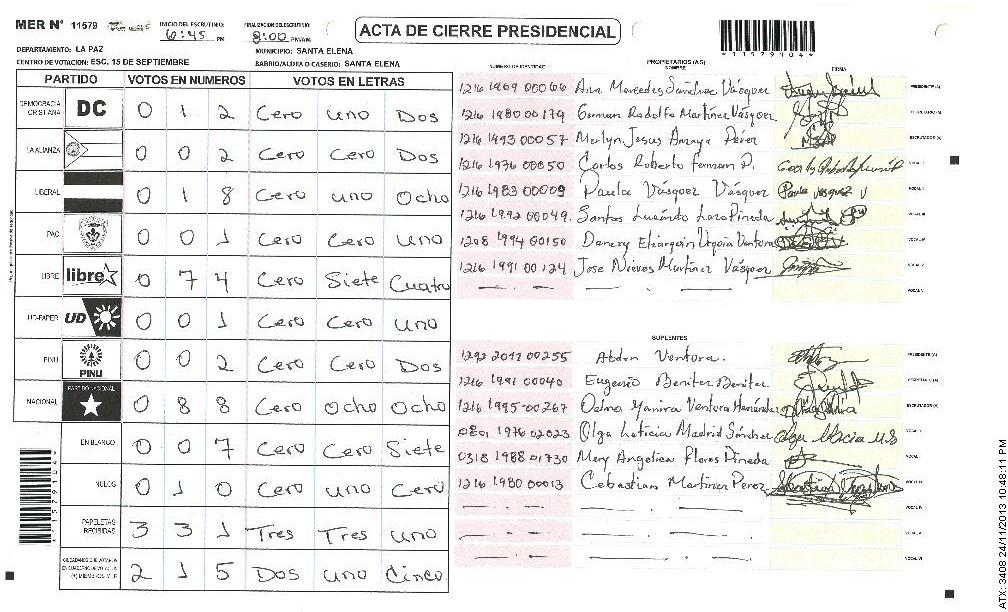 MER N° 11579
INICIO DEL ESCRUTINIO:
6:45 PM
FINALIZACION DEL ESCRUTINIO:
8:00 PM/AM
ACTA DE CIERRE PRESIDENCIAL
*11579104*
DEPARTAMENTO: LA PAZ
MUNICIPIO: SANTA ELENA
CENTRO DE VOTACION: ESC. 15 DE SEPTIEMBRE
BARRIO/ALDEA O CASERIO: SANTA ELENA
PARTIDO VOTOS EN NUMEROS VOTOS EN LETRAS
DEMOCRACIA CRISTIANA DC 0 1 2 Cero uno Dos
LA ALIANZA 0 0 2 Cero Cero Dos
LIBERAL 0 1 8 Cero uno Ocho
PAC 0 0 1 Cero Cero uno
LIBRE libre 0 7 4 Cero Siete Cuatro
UD-FAPER UD 0 0 1 Cero Cero uno
PINU PINU 0 0 2 Cero Cero Dos
NACIONAL PARTIDO NACIONAL 0 8 8 Cero Ocho Ocho
EN BLANCO 0 0 7 Cero Cero Siete
NULOS 0 1 0 Cero uno Cero
PAPELETAS RECIBIDAS 3 3 1 Tres Tres uno
2 1 5 Dos uno Cinco
PROPIETARIOS (AS)
NUMERO DE IDENTIDAD NOMBRE FIRMA
1216 1969 00066 Ana Mercedes Sanchez Vásquez PRESIDENTE (A)
1216 1980 00179 German Rodolfo Martínez Vásquez SECRETARIO (A)
1216 1993 00057 Merlyn Jesus Amaya Pérez ESCRUTADOR (A)
1216 1976 00050 Carlos Roberto VOCAL I
1216 1983 00009 Paula Vásquez Vásquez Paula Vasquez V VOCAL II
1216 1992 00049. Santos Lazo Pineda VOCAL III
1208 1994 00150 Ventura VOCAL IV
1216 1991 00124 Jose Nieves Martínez Vásquez VOCAL V
VOCAL VI
SUPLENTES
1292 2011 00255 Abdon Ventura. PRESIDENTE (A)
1216 1991 00040 Eugenio Benitez Benitez SECRETARIO (A)
1216 1995-00267 Yamira Ventura Hernández ESCRUTADOR (A)
0801 1976 02023 Olga Leticia Madrid Sánchez VOCAL I
0318 1988 01730 Mery Angelica Flores Pineda VOCAL II
1216 1980 00013 Cebastian Martinez Perez VOCAL III
VOCAL IV
VOCAL V
VOCAL VI
*11579104*
ATX: 3408 24/11/2013 10:48:11 PM